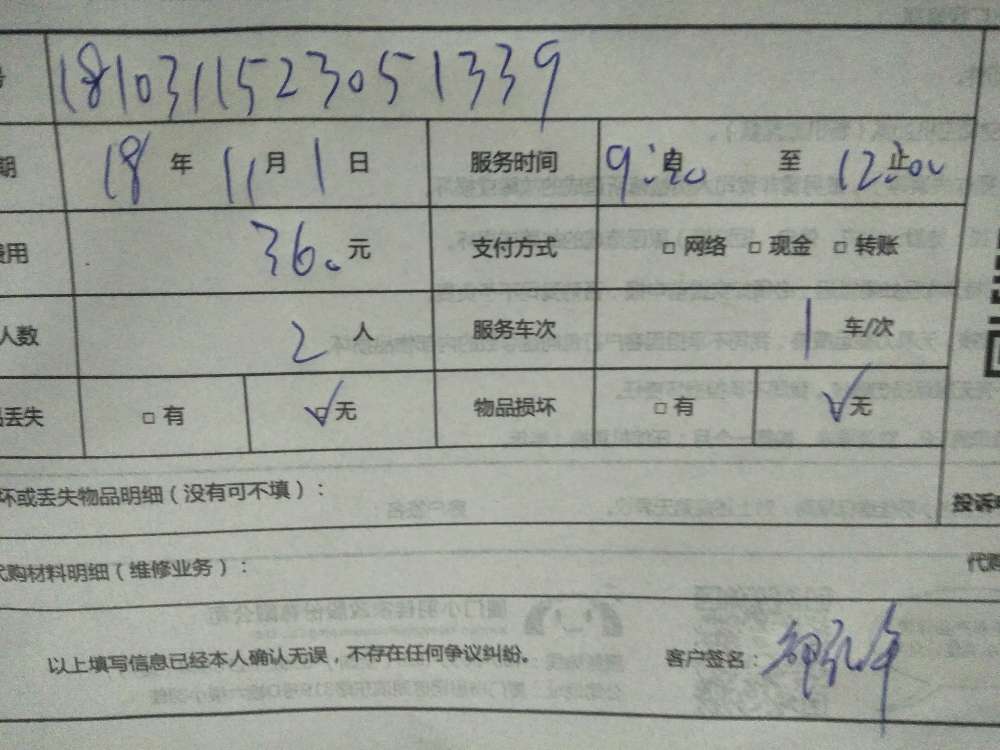 号 181031152305 1339
期 18 年 11 月 1 日 服务时间 9:00 由 至 12:00 止
费用 360 元 支付方式 □ 网络 □ 现金 □ 转账
人数 2 人 服务车次 1 车/次
品丢失 □ 有 ☑ 无 物品损坏 □ 有 ☑ 无
坏或丢失物品明细（没有可不填）：
投诉
代购材料明细（维修业务）：
代购
以上填写信息已经本人确认无误，不存在任何争议纠纷。 客户签名：